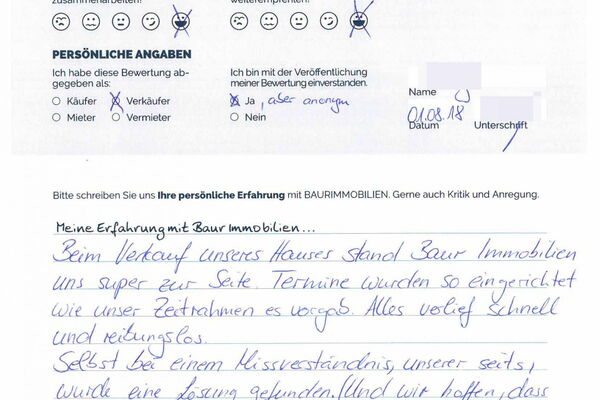 zusammenarbeiten? weiterempfehlen?
PERSÖNLICHE ANGABEN
Ich habe diese Bewertung ab-
gegeben als:
Käufer Verkäufer
Mieter Vermieter
Ich bin mit der Veröffentlichung
meiner Bewertung einverstanden.
Ja, aber anonym
Nein
Name
01.08.18
Datum Unterschrift
Bitte schreiben Sie uns Ihre persönliche Erfahrung mit BAURIMMOBILIEN. Gerne auch Kritik und Anregung.
Meine Erfahrung mit Baur Immobilien...
Beim Verkauf unseres Hauses stand Baur Immobilien
uns super zur Seite. Termine wurden so eingerichtet
wie unser Zeitrahmen es vorgab. Alles verlief schnell
und reibungslos.
Selbst bei einem Missverständnis, unserer seits,
wurde eine Lösung gefunden. (Und wir hoffen, dass